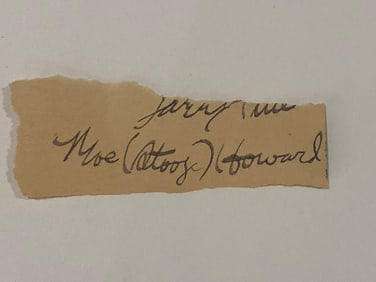 Larry Fine
Moe (Stooge) Howard